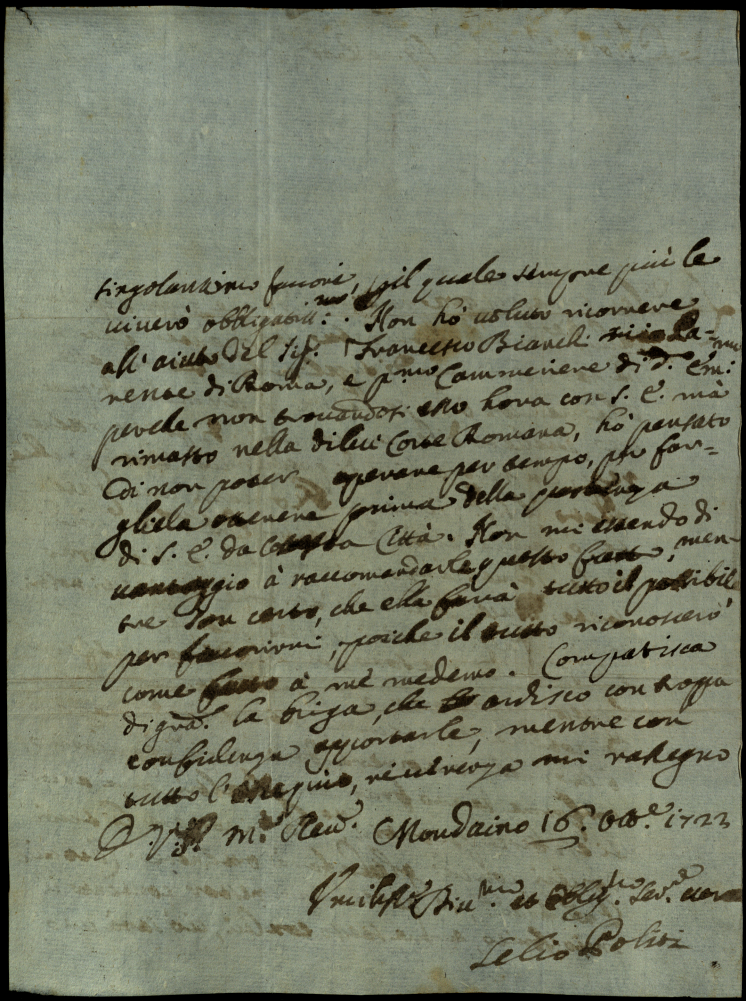 singolarissimo favore, per il quale sempre più le
viverò obbligatiss:mo. Non hò voluto ricorrere
all' aiuto del Sig.r Francesco Bianchi mio Pa-
rente di Roma, e p.mo Cammeriere di d.o Em:mo
perche non trovandosi esso hora con S. E. mà
rimasto nella di lui Corte Romana, hò pensato
di non poter operare per tempo, per far-
gliela ottenere prima della partenza
di S. E. da Città. Non mi estendo di
vantaggio à raccomandarle questo, men-
tre son certo, che ella farà tutto il possibile
per favorirmi, poiche il tutto riconoscerò
come fatto à me medemo. Compatisca
di gra.a la briga, che ardisco con troppa
confidenza apportarle, mentre con
tutto l'ossequio, e riverenza mi rassegno
D. V. S. M. Rev.a Mondaino 16. Ott.e 1723
Umiliss.o Div.mo et Obblig.mo Ser.e vero
Lelio Politi